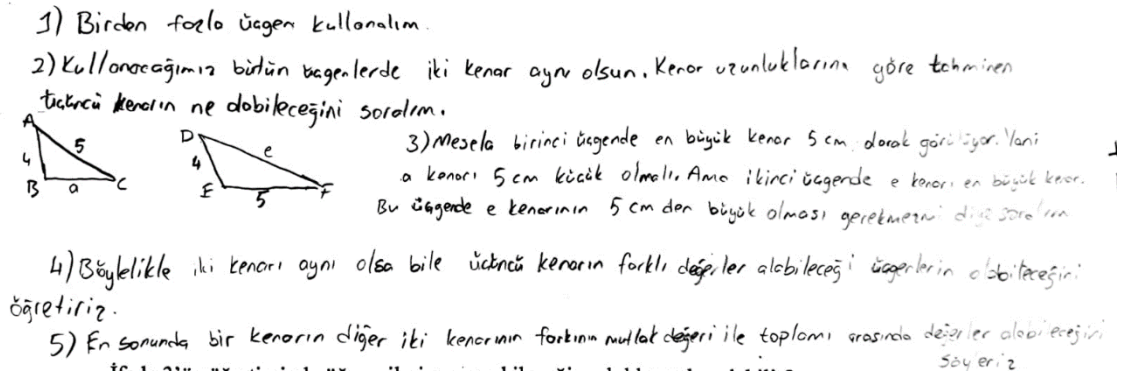 1) Birden fazla üçgen kullanalım.
2) Kullanacağımız bütün üçgenlerde iki kenar aynı olsun. Kenar uzunluklarına göre tahminen
üçüncü kenarın ne olabileceğini soralım.
A
4
5
B
a
C
D
4
e
E
5
F
3) Mesela birinci üçgende en büyük kenar 5 cm olarak görülüyor. Yani
a kenarı 5 cm küçük olmalı. Ama ikinci üçgende e kenarı en büyük kenar.
Bu üçgende e kenarının 5 cm den büyük olması gerekmezmi diye soralım
4) Böylelikle iki kenarı aynı olsa bile üçüncü kenarın farklı değerler alabileceği üçgenlerin olabileceğini
öğretiriz.
5) En sonunda bir kenarın diğer iki kenarının farkının mutlak değeri ile toplamı arasında değerler alabileceğini
söyleriz